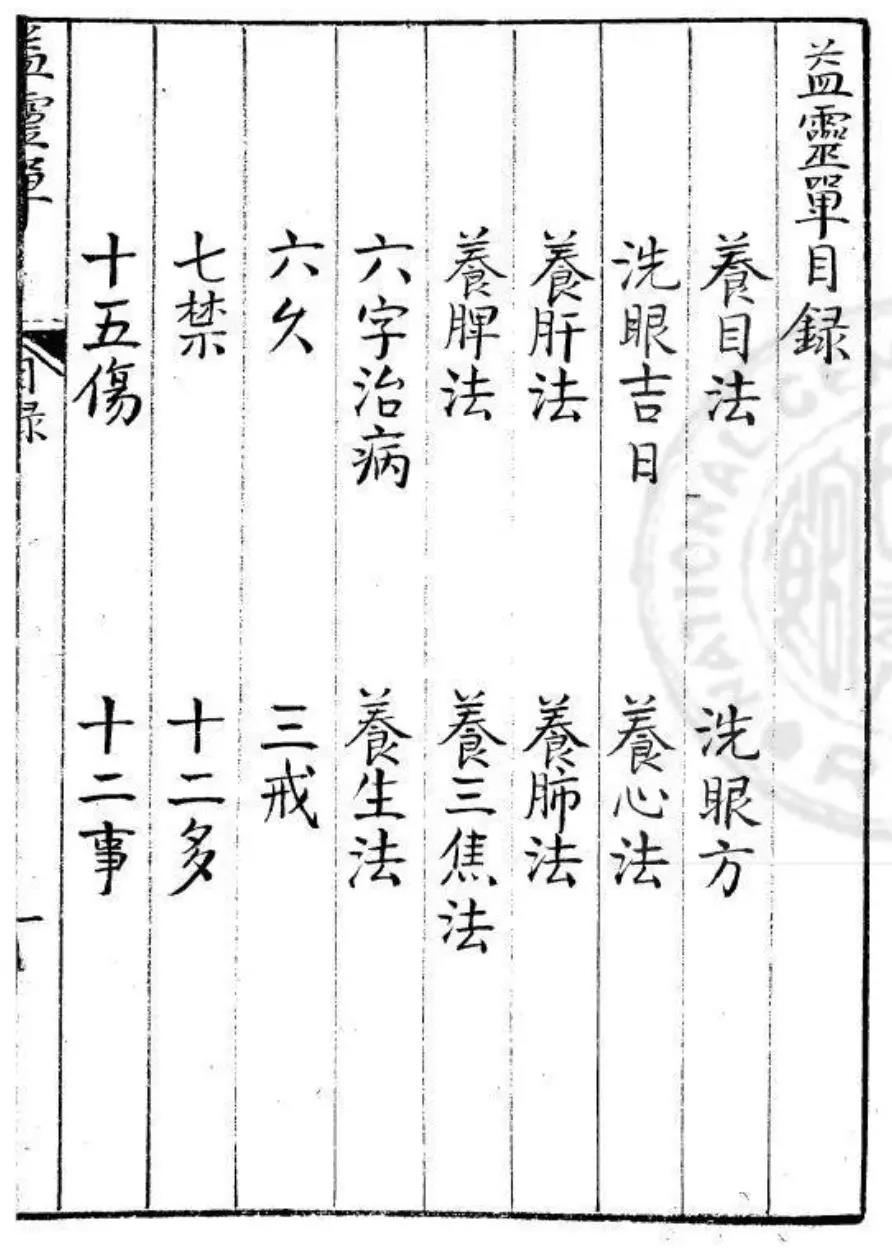 益靈單目録
養目法 洗眼方
洗眼吉日 養心法
養肝法 養肺法
養脾法 養三焦法
六字治病 養生法
六久 三戒
七禁 十二多
十五傷 十二事
益靈單 目録 一
NATIONAL CEN